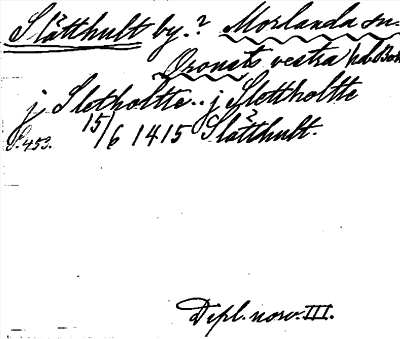 Slåtthult by.? Morlanda sn.
Orousts vestra hd. Boh
j Slotholtte.. j Slottholtte
S. 453. 15/6 1415 Slåtthult.
Dipl. norv. III.